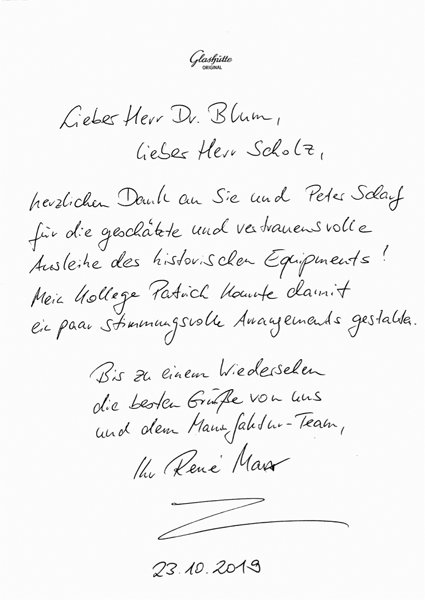 Glashütte
ORIGINAL
Lieber Herr Dr. Blum,
lieber Herr Scholz,
herzlichen Dank an Sie und Peter Scharf
für die geschätzte und vertrauensvolle
Ausleihe des historischen Equipments!
Mein Kollege Patrick konnte damit
ein paar stimmungsvolle Arrangements gestalten.
Bis zu einem Wiedersehen
die besten Grüße von uns
und dem Manufaktur-Team,
Ihr René
23.10.2019